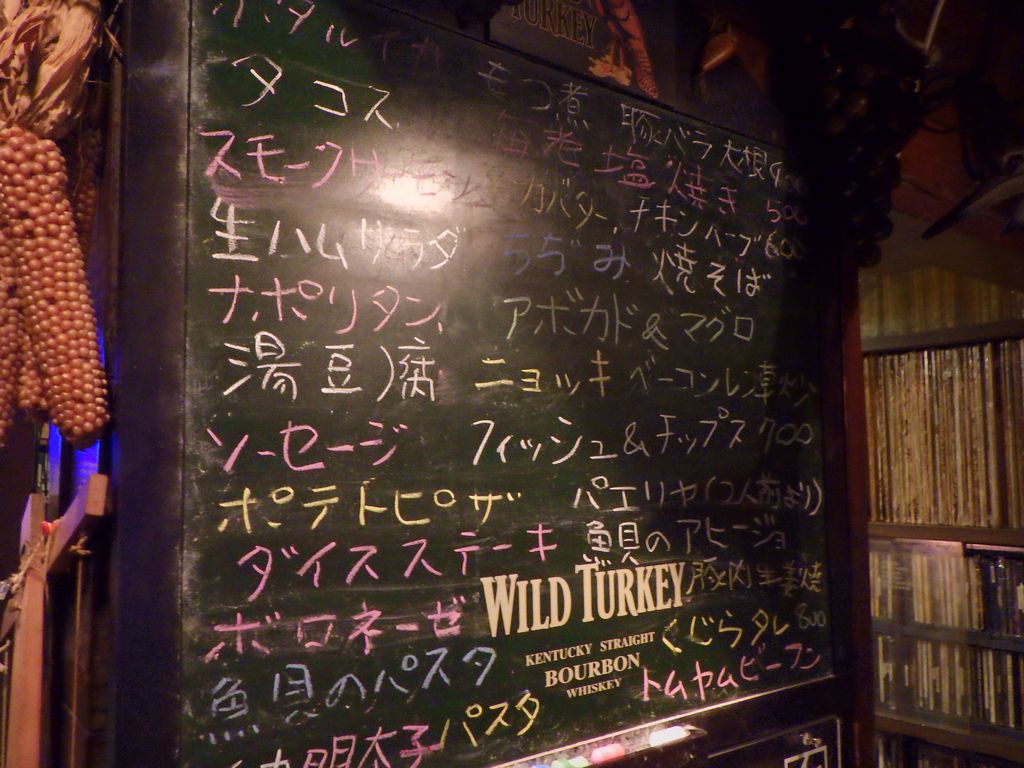 TURKEY
ホタルイカ
タコス
スモークサーモン
生ハムサラダ
ナポリタン
湯豆腐
ソーセージ
ポテトピザ
ダイスステーキ
ボロネーゼ
魚貝のパスタ
明太子パスタ
もつ煮 豚バラ大根
海老 塩焼き 500
バター チキンハーブ 600
ちぢみ 焼そば
アボカド&マグロ
ニョッキ ベーコン
フィッシュ&チップス 700
パエリヤ(2人前より)
魚貝のアヒージョ
豚肉生姜焼
くじらタレ 800
トムヤムビーフン
WILD TURKEY
KENTUCKY STRAIGHT
BOURBON
WHISKEY